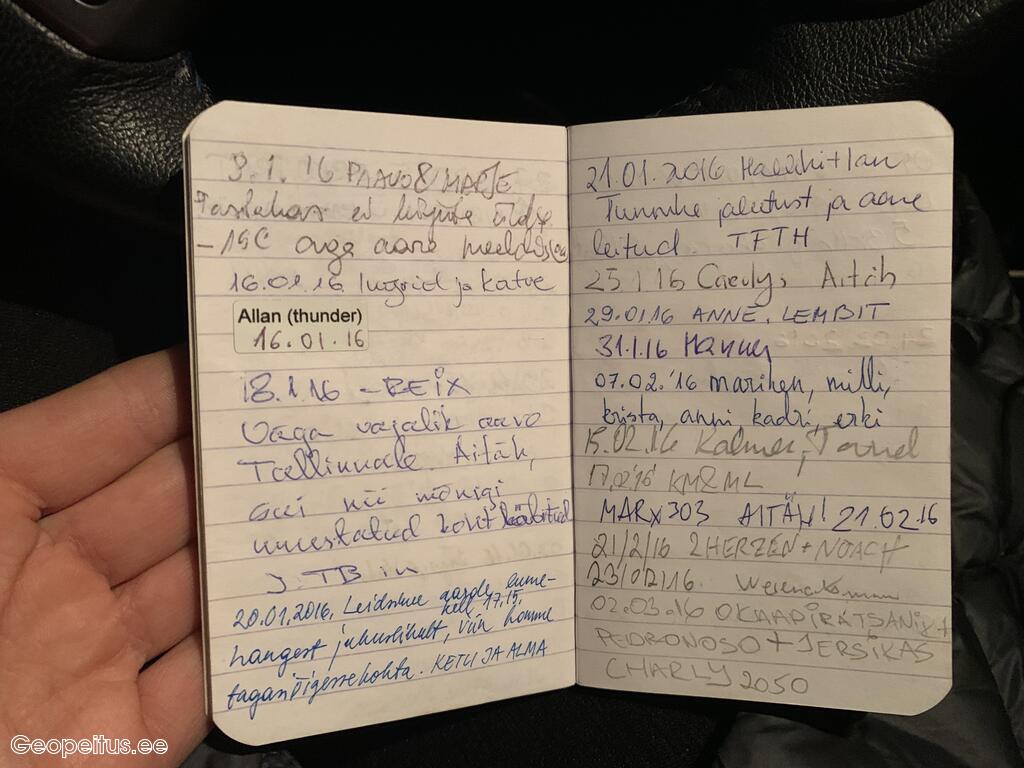 9.1.16 PAAVO & MARJE
Tartakas ei kõguta üldse
-19C aga aare meeldis
16.01.16 Ingrid ja Katre
Allan (thunder)
16.01.16
18.1.16 - BEIX
Väga vajalik aare
Tallinnale. Aitäh,
sai nii mõnigi
unustatud koht läbitud
J: TB in
20.01.2016. Leidsime aarde lume-
kell 17.15.
hangest juhuslikult, viin homme
tagasi õigesse kohta. KETLI JA ALMA
21.01.2016
Tunnike jalutust ja aare
leitud TFTH
25.1.16 Aitäh
29.01.16 ANNE, LEMBIT
31.1.16
07.02.'16 mariken, milli,
krista, anni, kadri, erki
15.02.16 Kalmer,
17.02.16 KM&ML
MARX303 AITÄH! 21.02.16
21/2/16 2HERZEN+NOACH
23/02/16
02.03.16
PEDRONOSO + JERSIKAS
CHARLY2050
Geopeitus.ee